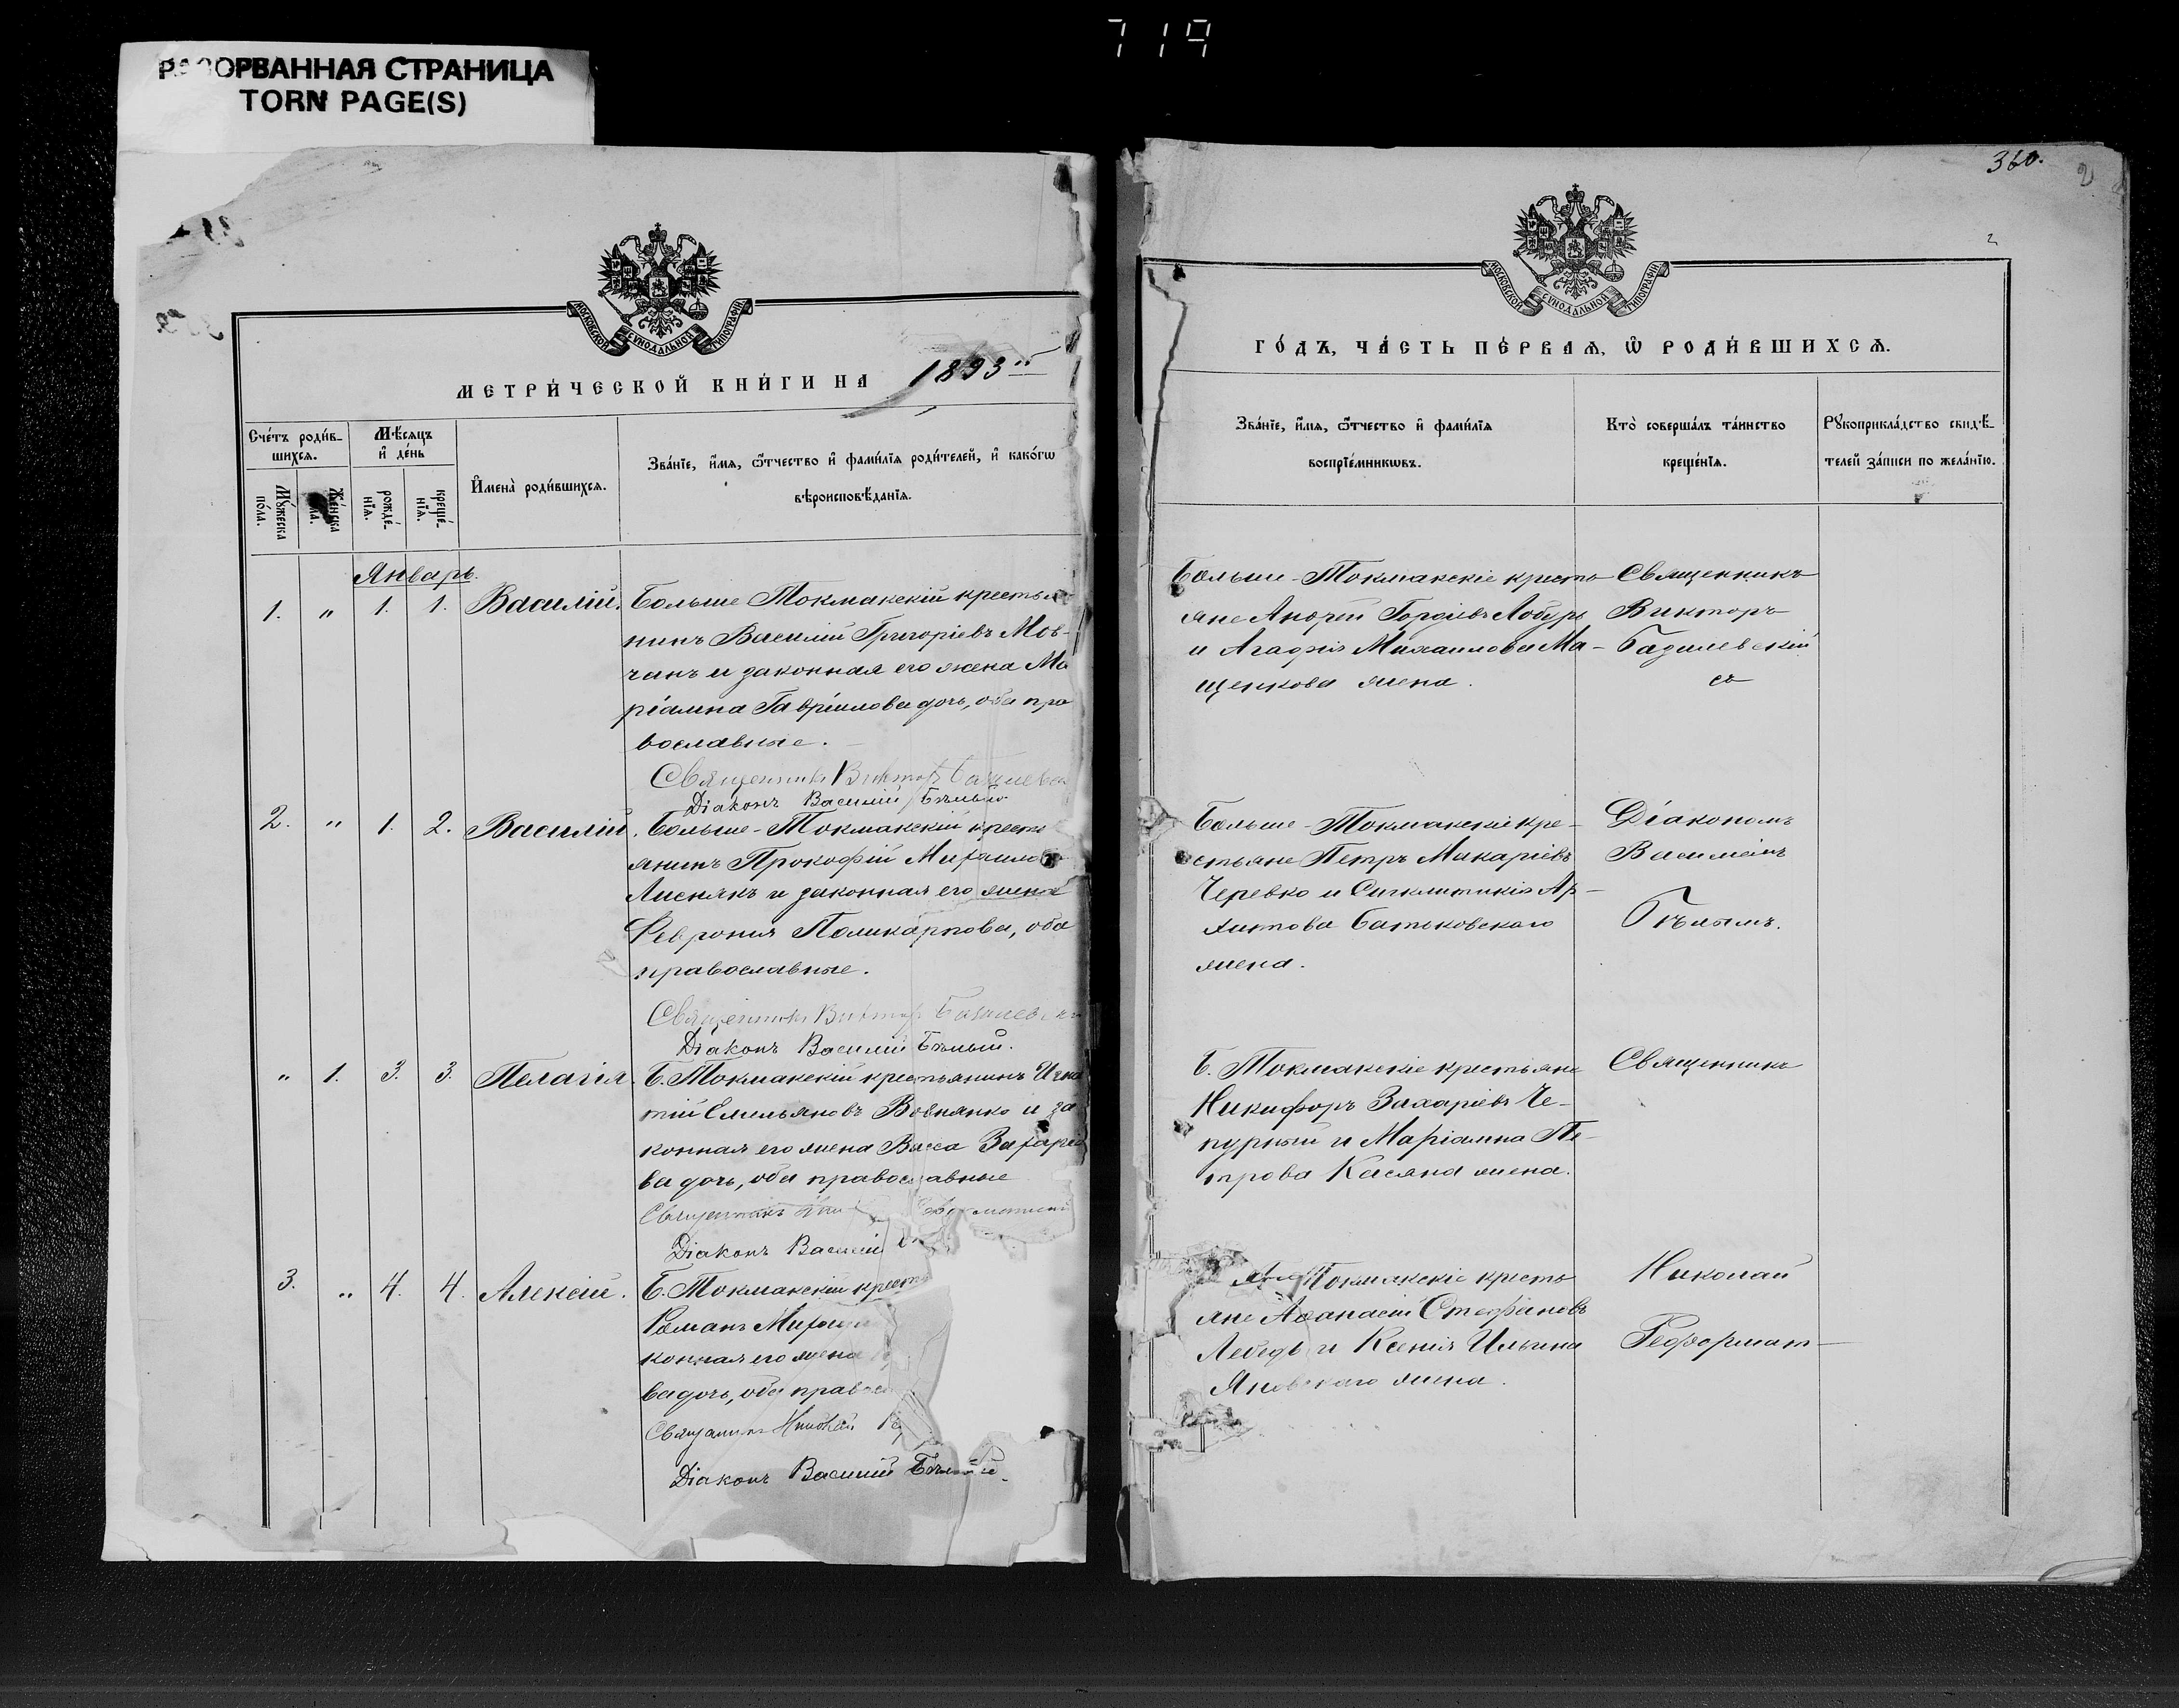 719
РАЗОРВАННАЯ СТРАНИЦА
TORN PAGE(S)
360.
2
МОСКОВСКОЙ СѴНОДАЛЬНОЙ ТИПОГРАФІИ
МЕТРИ́ЧЕСКОЙ КНИ́ГИ НА 1893
Сче́тъ роди́в-
шихсѧ.
Мѣ́сѧцъ
и҆ де́нь
Мꙋ́жеска
по́ла.
Же́нска
рожде́-
нїѧ.
креще́-
нїѧ.
И҆мена̀ роди́вшихсѧ.
Зва́нїе, и҆́мѧ, ѻ҆́тчество и҆ фами́лїѧ роди́телей, и҆ како́гѡ
вѣроисповѣ́данїѧ.
Январь.
1. " 1. 1. Василій. Больше Токмакскій крестья
нинъ Василій Григоріевъ Мов-
чанъ и законная его жена Ма
ріамна Гавріилова дочь, оба пра
вославные.
Священникъ Викторъ
Діаконъ Василій Бѣлый
2. " 1. 2. Василій. Больше-Токмакскій кресть
янинъ Прокофій Михаилов
Лиснякъ и законная его жена
Феврония Поликарпова, оба
православные.
Священникъ Виктор
Діаконъ Василій Бѣлый.
" 1. 3. 3. Пелагія. Б. Токмакскій крестьянинъ Игна
тій Емельяновъ Вовнянко и за
конная его жена Васса Захаріе
ва дочь, оба православные
Священникъ
Діаконъ Василій
3. " 4. 4. Алексій. Б. Токмакскій крест
Романъ Михаи
конная его жена
ва дочь, оба правос
Священникъ Николай
Діаконъ Василій Бѣлый.
МОСКОВСКОЙ СѴНОДАЛЬНОЙ ТИПОГРАФІИ
ГО́ДЪ, ЧА́СТЬ ПЕ́РВАѦ, Ѡ҆ РОДИ́ВШИХСѦ.
Зва́нїе, и҆́мѧ, ѻ҆́тчество и҆ фами́лїѧ
воспрїе́мникѡвъ.
Кто̀ соверша́лъ та́инство
креще́нїѧ.
Рꙋкоприкла́дство свидѣ́-
телей за́писи по жела́нїю.
Больше-Токмакскіе кресть-
яне Андрей Гордіевъ Лобуръ
и Агафія Михаилова Ма-
щенкова жена.
Священникъ
Викторъ
Базилевскій
съ
Больше-Токмакскіе кре-
стьяне Петръ Макаріевъ
Черевко и Сигклитикія Ар-
хипова Батьковскаго
жена.
Діакономъ
Василіемъ
Бѣлымъ.
Б. Токмакскіе крестьяне
Никифоръ Захаріевъ Че-
пурный и Маріамна Пе-
трова Касяна жена.
Священникъ
Токмакскіе кресть
яне Афанасій Стефановъ
Лебедь и Ксенія Ильина
Яновскаго жена.
Николай
Реформат-